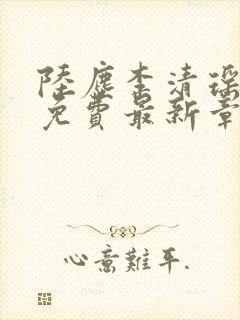 陸塵李清瑤
免費最新章
心意難平.